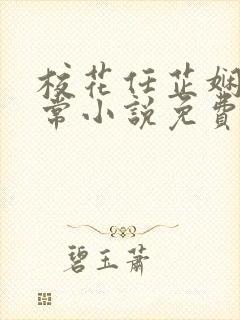 校花任芷娴
常小說免費
碧玉蕭